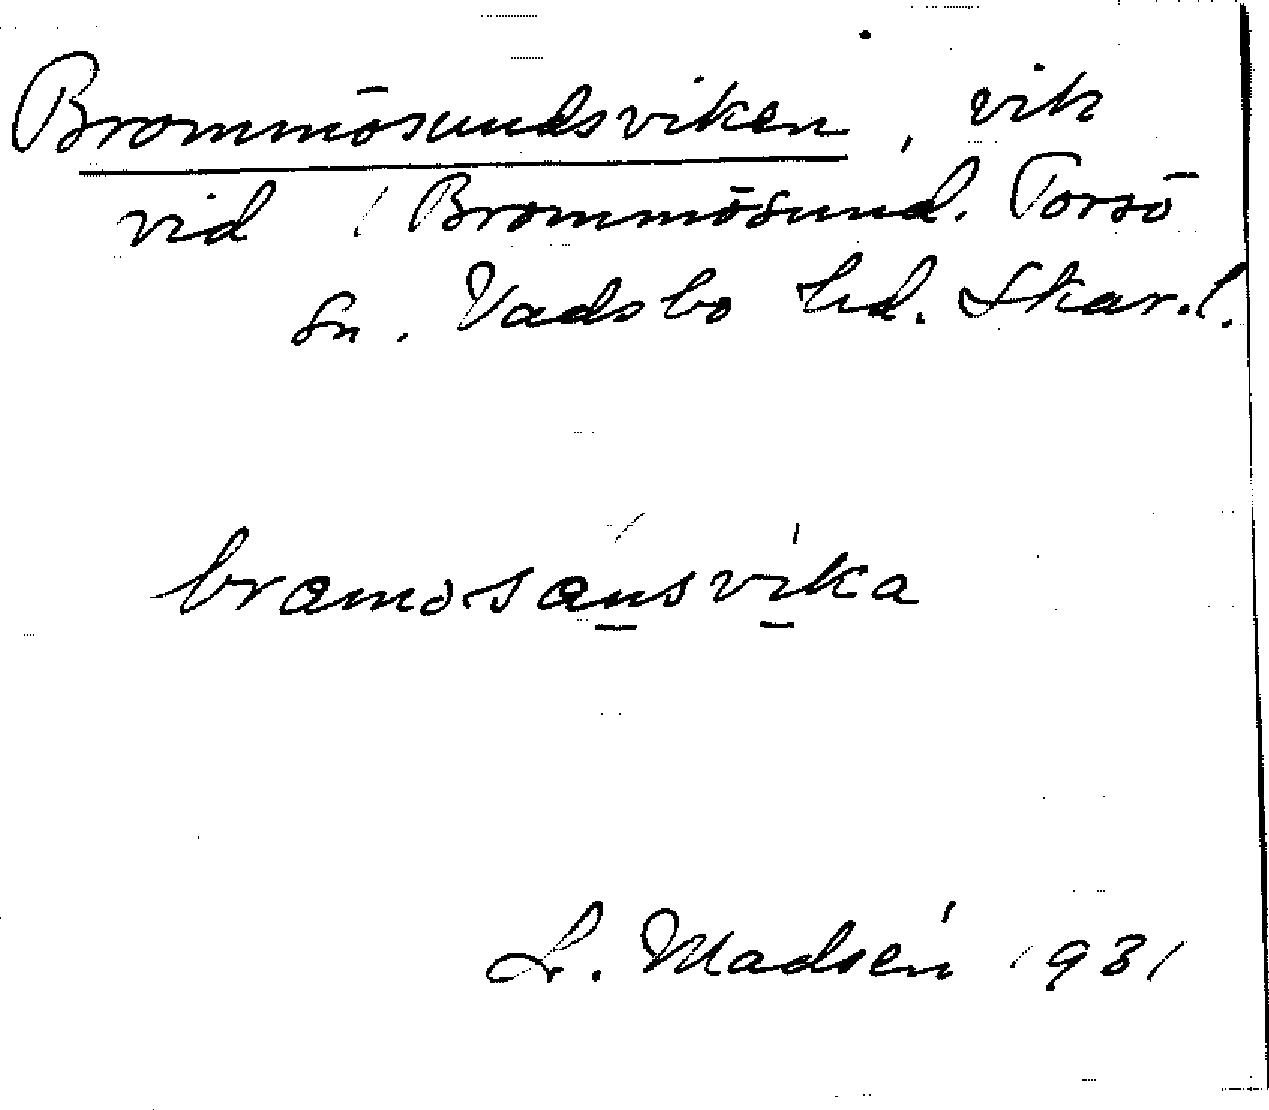 Brommösundsviken, vik
vid Brommösund. Torsö
sn. Vadsbo hd. Skar.l.
bramosánsvíka
L. Madsén 1931